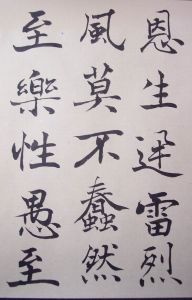 恩生迅雷烈
風莫不蠢然
至樂性愚至